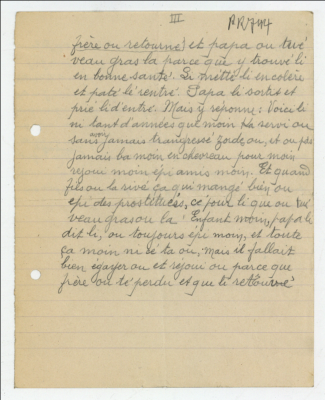 III
AR744
frère ou retourné) et papa ou tué
veau gras la parce que y trouvé li
en bonne santé. Li mettè li en colère
et pate lè rentré. Papa li sortie et
prié li d'entré. Mais y réponne : Voici la
ni tant d'années que moin ka servi ou
sans avoir jamais transgressé zordre ou, et ou pas
jamais ba moin en chevreau pour moin
réjoui moin épi amis moin. Et quand
fils ou la rivé ça qui mangé bien ou
épi des prostituées, ce jour li que ou tué
veau gras ou la. Enfant moin, papa la
dit li, ou toujours épi moin, et toute
ça moin ni sé ta ou, mais il fallait
bien égayer ou et réjoui ou parce que
frère ou té perdu et que li retourné